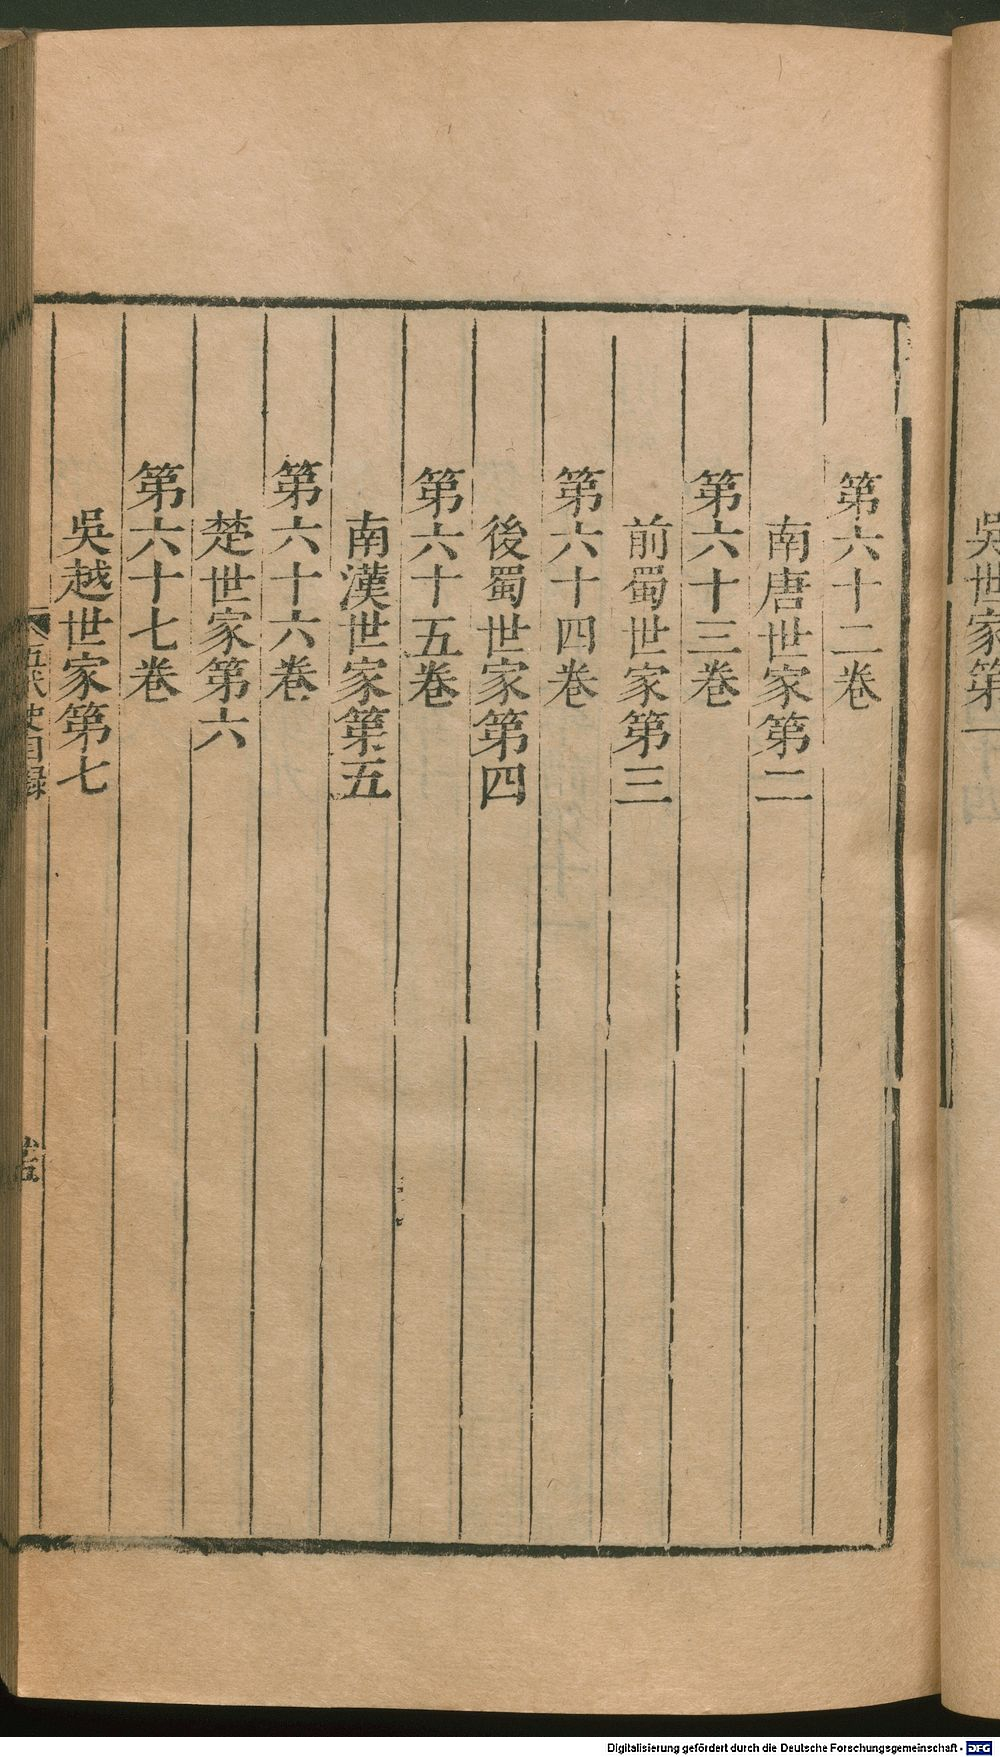 吳世家第一
第六十二卷
南唐世家第二
第六十三卷
前蜀世家第三
第六十四卷
後蜀世家第四
第六十五卷
南漢世家第五
第六十六卷
楚世家第六
第六十七卷
吳越世家第七
五代史目録
Digitalisierung gefördert durch die Deutsche Forschungsgemeinschaft - DFG